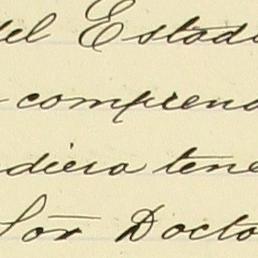 del Estad
comprend
diera tene
Sor Docto